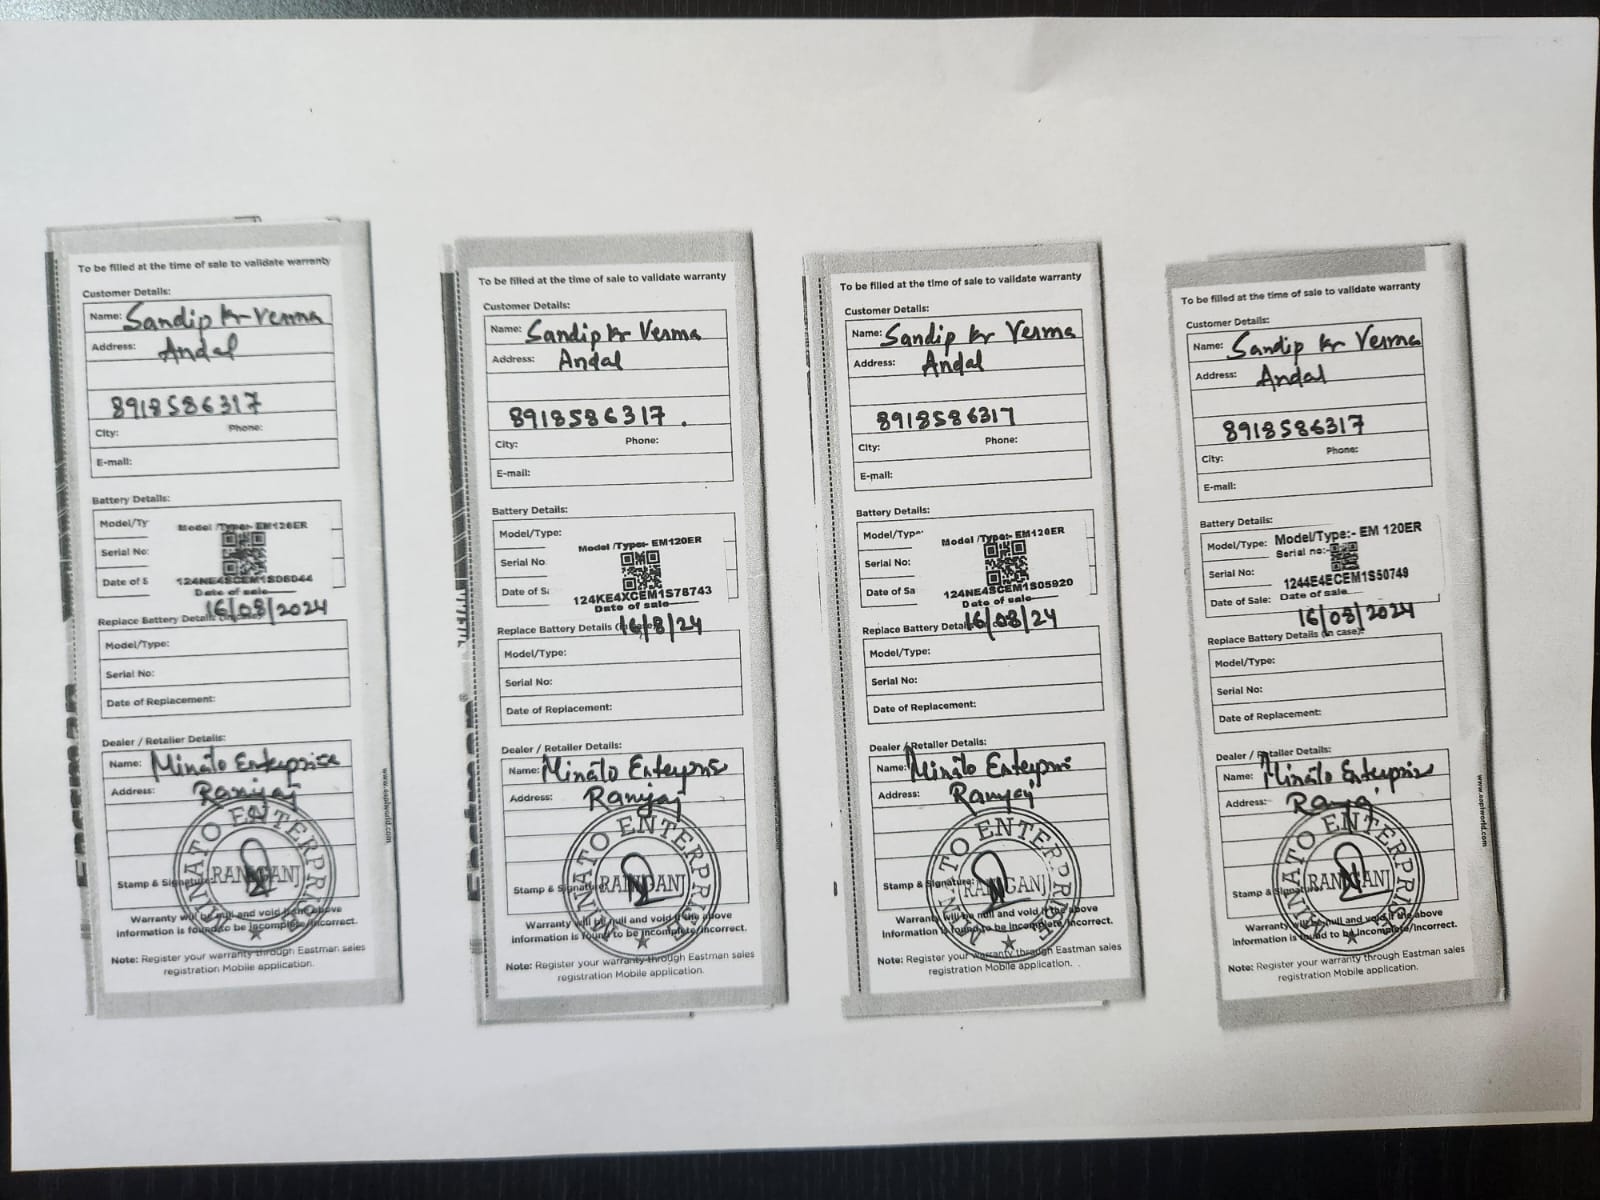 To be filled at the time of sale to validate warranty
Customer Details:
Name: Sandip Kr Verma
Address: Andal
8918586317
City: Phone:
E-mail:
Battery Details:
Model/Ty Model /Type:- EM120ER
Serial No:
Date of S 124NE4SCEM1S06044
Date of sale
16/08/2024
Replace Battery Details
Model/Type:
Serial No:
Date of Replacement:
Dealer / Retailer Details:
Name: Minato Enterprise
Address: Raniganj
MINATO ENTERPRISE
RANIGANJ
Stamp & Signature:
Warranty will be null and void if the above
information is found to be incomplete/incorrect.
Note: Register your warranty through Eastman sales
registration Mobile application.
www.eaplworld.com
To be filled at the time of sale to validate warranty
Customer Details:
Name: Sandip Kr Verma
Address: Andal
8918586317.
City: Phone:
E-mail:
Battery Details:
Model/Type:
Model /Type:- EM120ER
Serial No
Date of Sa 124KE4XCEM1S78743
Date of sale
16/8/24
Replace Battery Details
Model/Type:
Serial No:
Date of Replacement:
Dealer / Retailer Details:
Name: Minato Enterpris
Address: Raniganj
MINATO ENTERPRISE
RANIGANJ
Stamp & Signature
Warranty will be null and void if the above
information is found to be incomplete/incorrect.
Note: Register your warranty through Eastman sales
registration Mobile application.
To be filled at the time of sale to validate warranty
Customer Details:
Name: Sandip Kr Verma
Address: Andal
8918586317
City: Phone:
E-mail:
Battery Details:
Model/Type Model /Type:- EM120ER
Serial No:
Date of Sa 124NE4SCEM1S05920
Date of sale
16/08/24
Replace Battery Details
Model/Type:
Serial No:
Date of Replacement:
Dealer / Retailer Details:
Name: Minato Enterpri
Address: Raniganj
MINATO ENTERPRISE
RANIGANJ
Stamp & Signature:
Warranty will be null and void if the above
information is found to be incomplete/incorrect.
Note: Register your warranty through Eastman sales
registration Mobile application.
To be filled at the time of sale to validate warranty
Customer Details:
Name: Sandip Kr Verma
Address: Andal
8918586317
City: Phone:
E-mail:
Battery Details:
Model/Type: Model/Type:- EM 120ER
Serial no:-
Serial No: 1244E4ECEM1S50749
Date of Sale: Date of sale
16/08/2024
Replace Battery Details (in case):
Model/Type:
Serial No:
Date of Replacement:
Dealer / Retailer Details:
Name: Minato Enterpris
Address:
MINATO ENTERPRISE
RANIGANJ
Stamp & Signature
Warranty will be null and void if the above
information is found to be incomplete/incorrect.
Note: Register your warranty through Eastman sales
registration Mobile application.
www.eaplworld.com